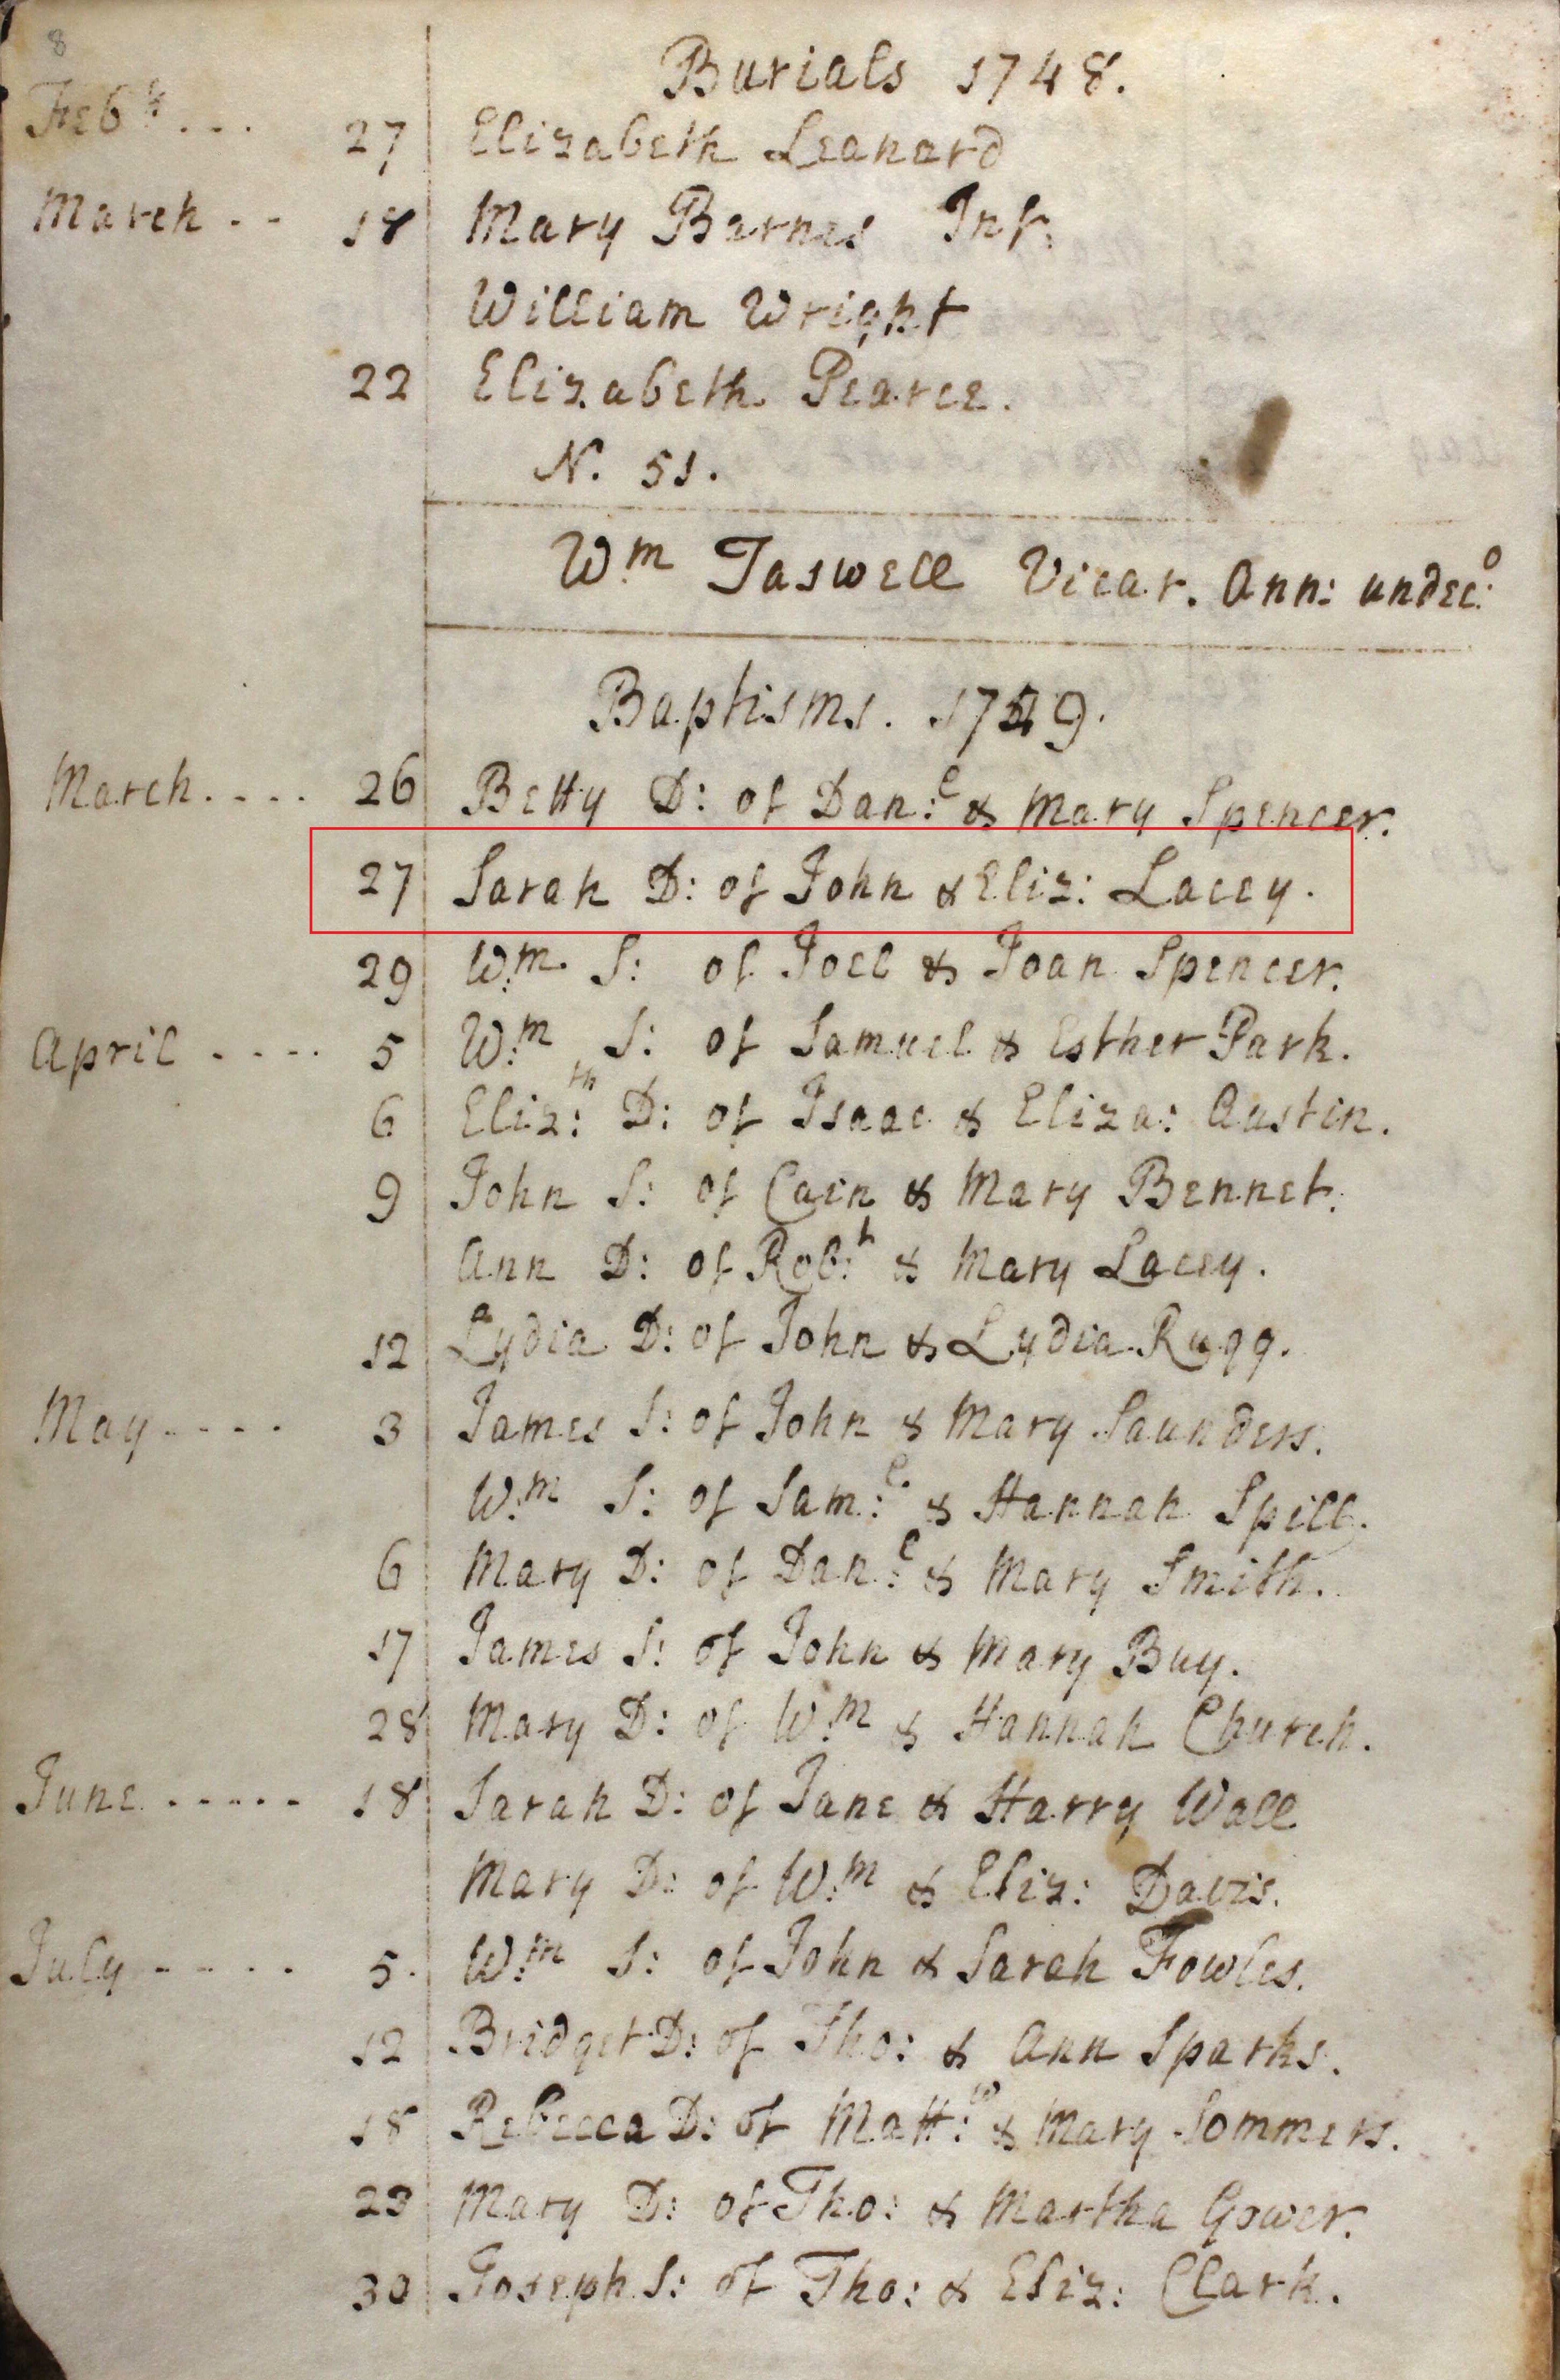 8
Burials 1748.
Feb.y ... 27 Elizabeth Leanard
March .. 18 Mary Barnes Inf:
William Wright
22 Elizabeth Pearce.
N. 51.
W.m Taswell Vicar. Ann: undec:o
Baptisms. 1749.
March.... 26 Betty D: of Dan:l & Mary Spencer.
27 Sarah D: of John & Eliz: Lacey.
29 W:m S: of Joel & Joan Spencer.
April .... 5 W:m S: of Samuel & Esther Park.
6 Eliz:th D: of Isaac & Eliza: Austin.
9 John S: of Cain & Mary Bennet.
Ann D: of Rob:t & Mary Lacey.
12 Lydia D: of John & Lydia Rugg.
May .... 3 James S: of John & Mary Saunders.
W:m S: of Sam:l & Hannah Spill.
6 Mary D: of Dan:l & Mary Smith.
17 James S: of John & Mary Buy.
28 Mary D: of W:m & Hannah Church.
June ..... 18 Sarah D: of Jane & Harry Wall
Mary D: of W:m & Eliz: Davis.
July .... 5. W:m S: of John & Sarah Fowles.
12 Bridget D: of Tho: & Ann Sparks.
18 Rebecca D: of Matt:w & Mary Sommers.
23 Mary D: of Tho: & Martha Gower.
30 Joseph S: of Tho: & Eliz: Clark.